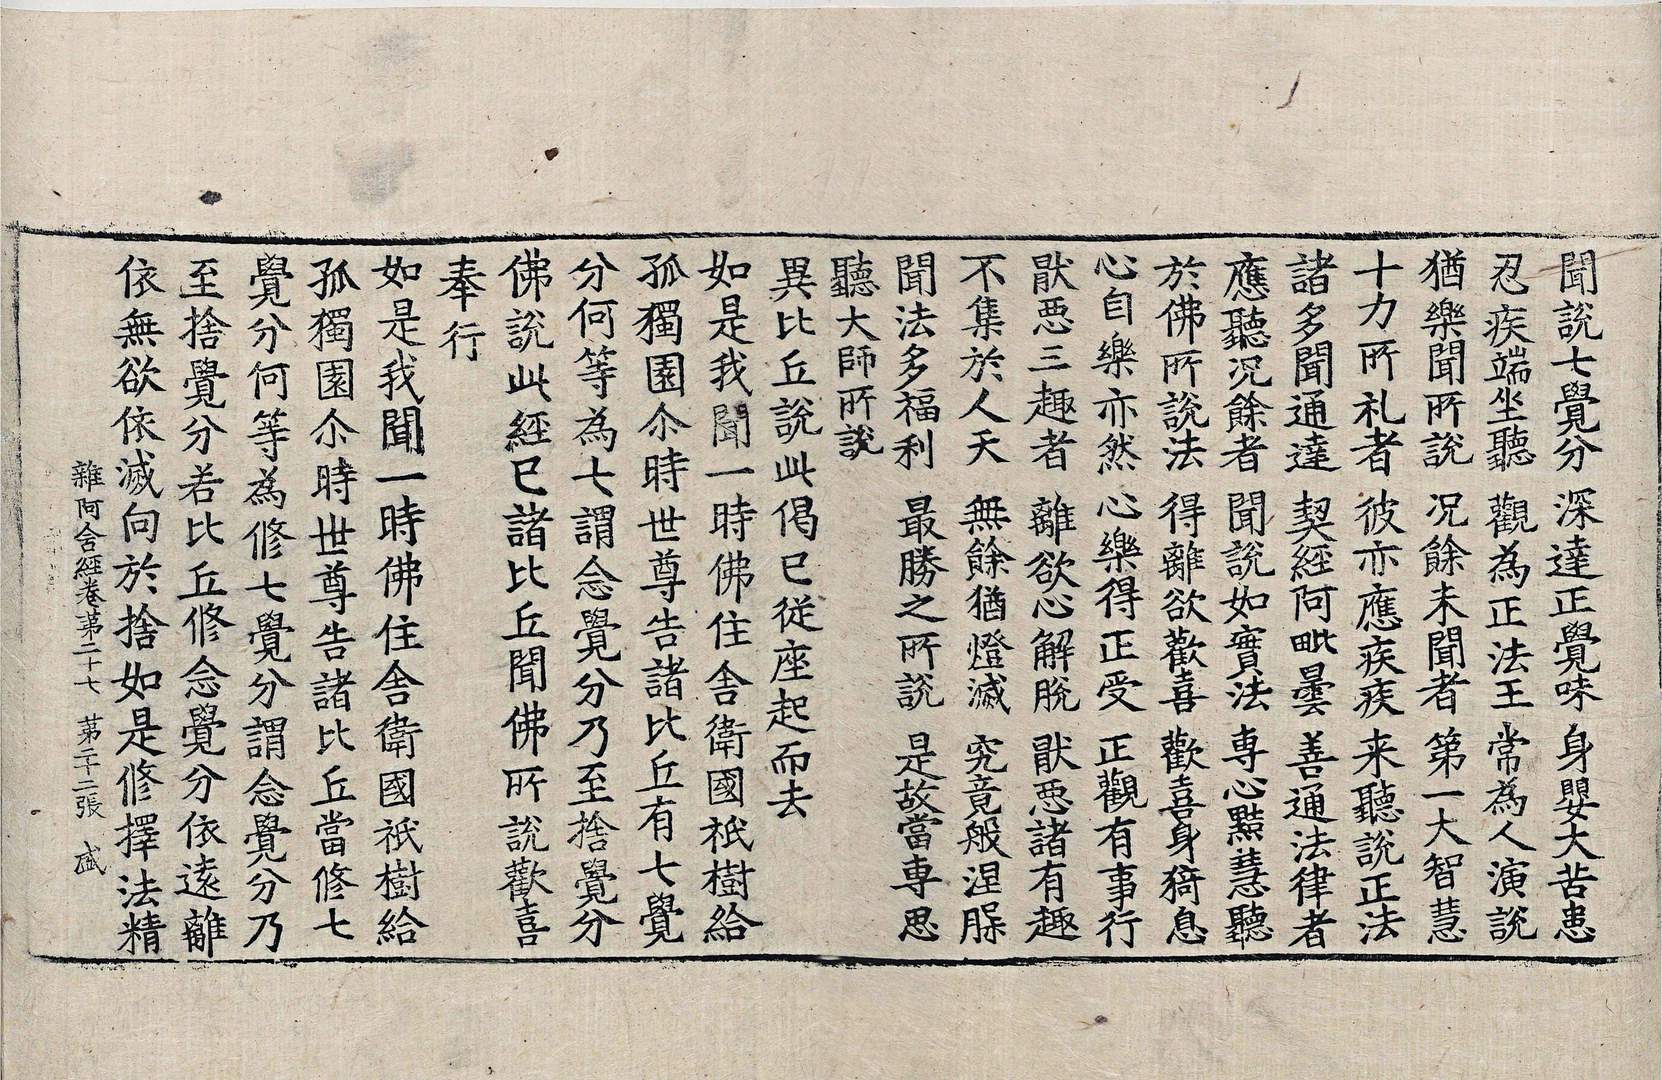 聞說七覺分 深達正覺味 身嬰大苦患
忍疾端坐聽 觀為正法王 常為人演說
猶樂聞所說 况餘未聞者 第一大智慧
十力所礼者 彼亦應疾疾 来聽說正法
諸多聞通達 契經阿毗曇 善通法律者
應聽况餘者 聞說如實法 専心黠慧聽
於佛所說法 得離欲歡喜 歡喜身猗息
心自樂亦然 心樂得正受 正觀有事行
猒惡三趣者 離欲心解脫 猒惡諸有趣
不集於人天 無餘猶燈滅 究竟般涅槃
聞法多福利 最勝之所說 是故當専思
聽大師所說
異比丘說此偈已從座起而去
如是我聞一時佛住舍衛國祇樹給
孤獨園尒時世尊告諸比丘有七覺
分何等為七謂念覺分乃至捨覺分
佛說此經已諸比丘聞佛所說歡喜
奉行
如是我聞一時佛住舍衛國祇樹給
孤獨園尒時世尊告諸比丘當修七
覺分何等為修七覺分謂念覺分乃
至捨覺分若比丘修念覺分依遠離
依無欲依滅向於捨如是修擇法精
雜阿含經卷第二十七 第二十二張 盛